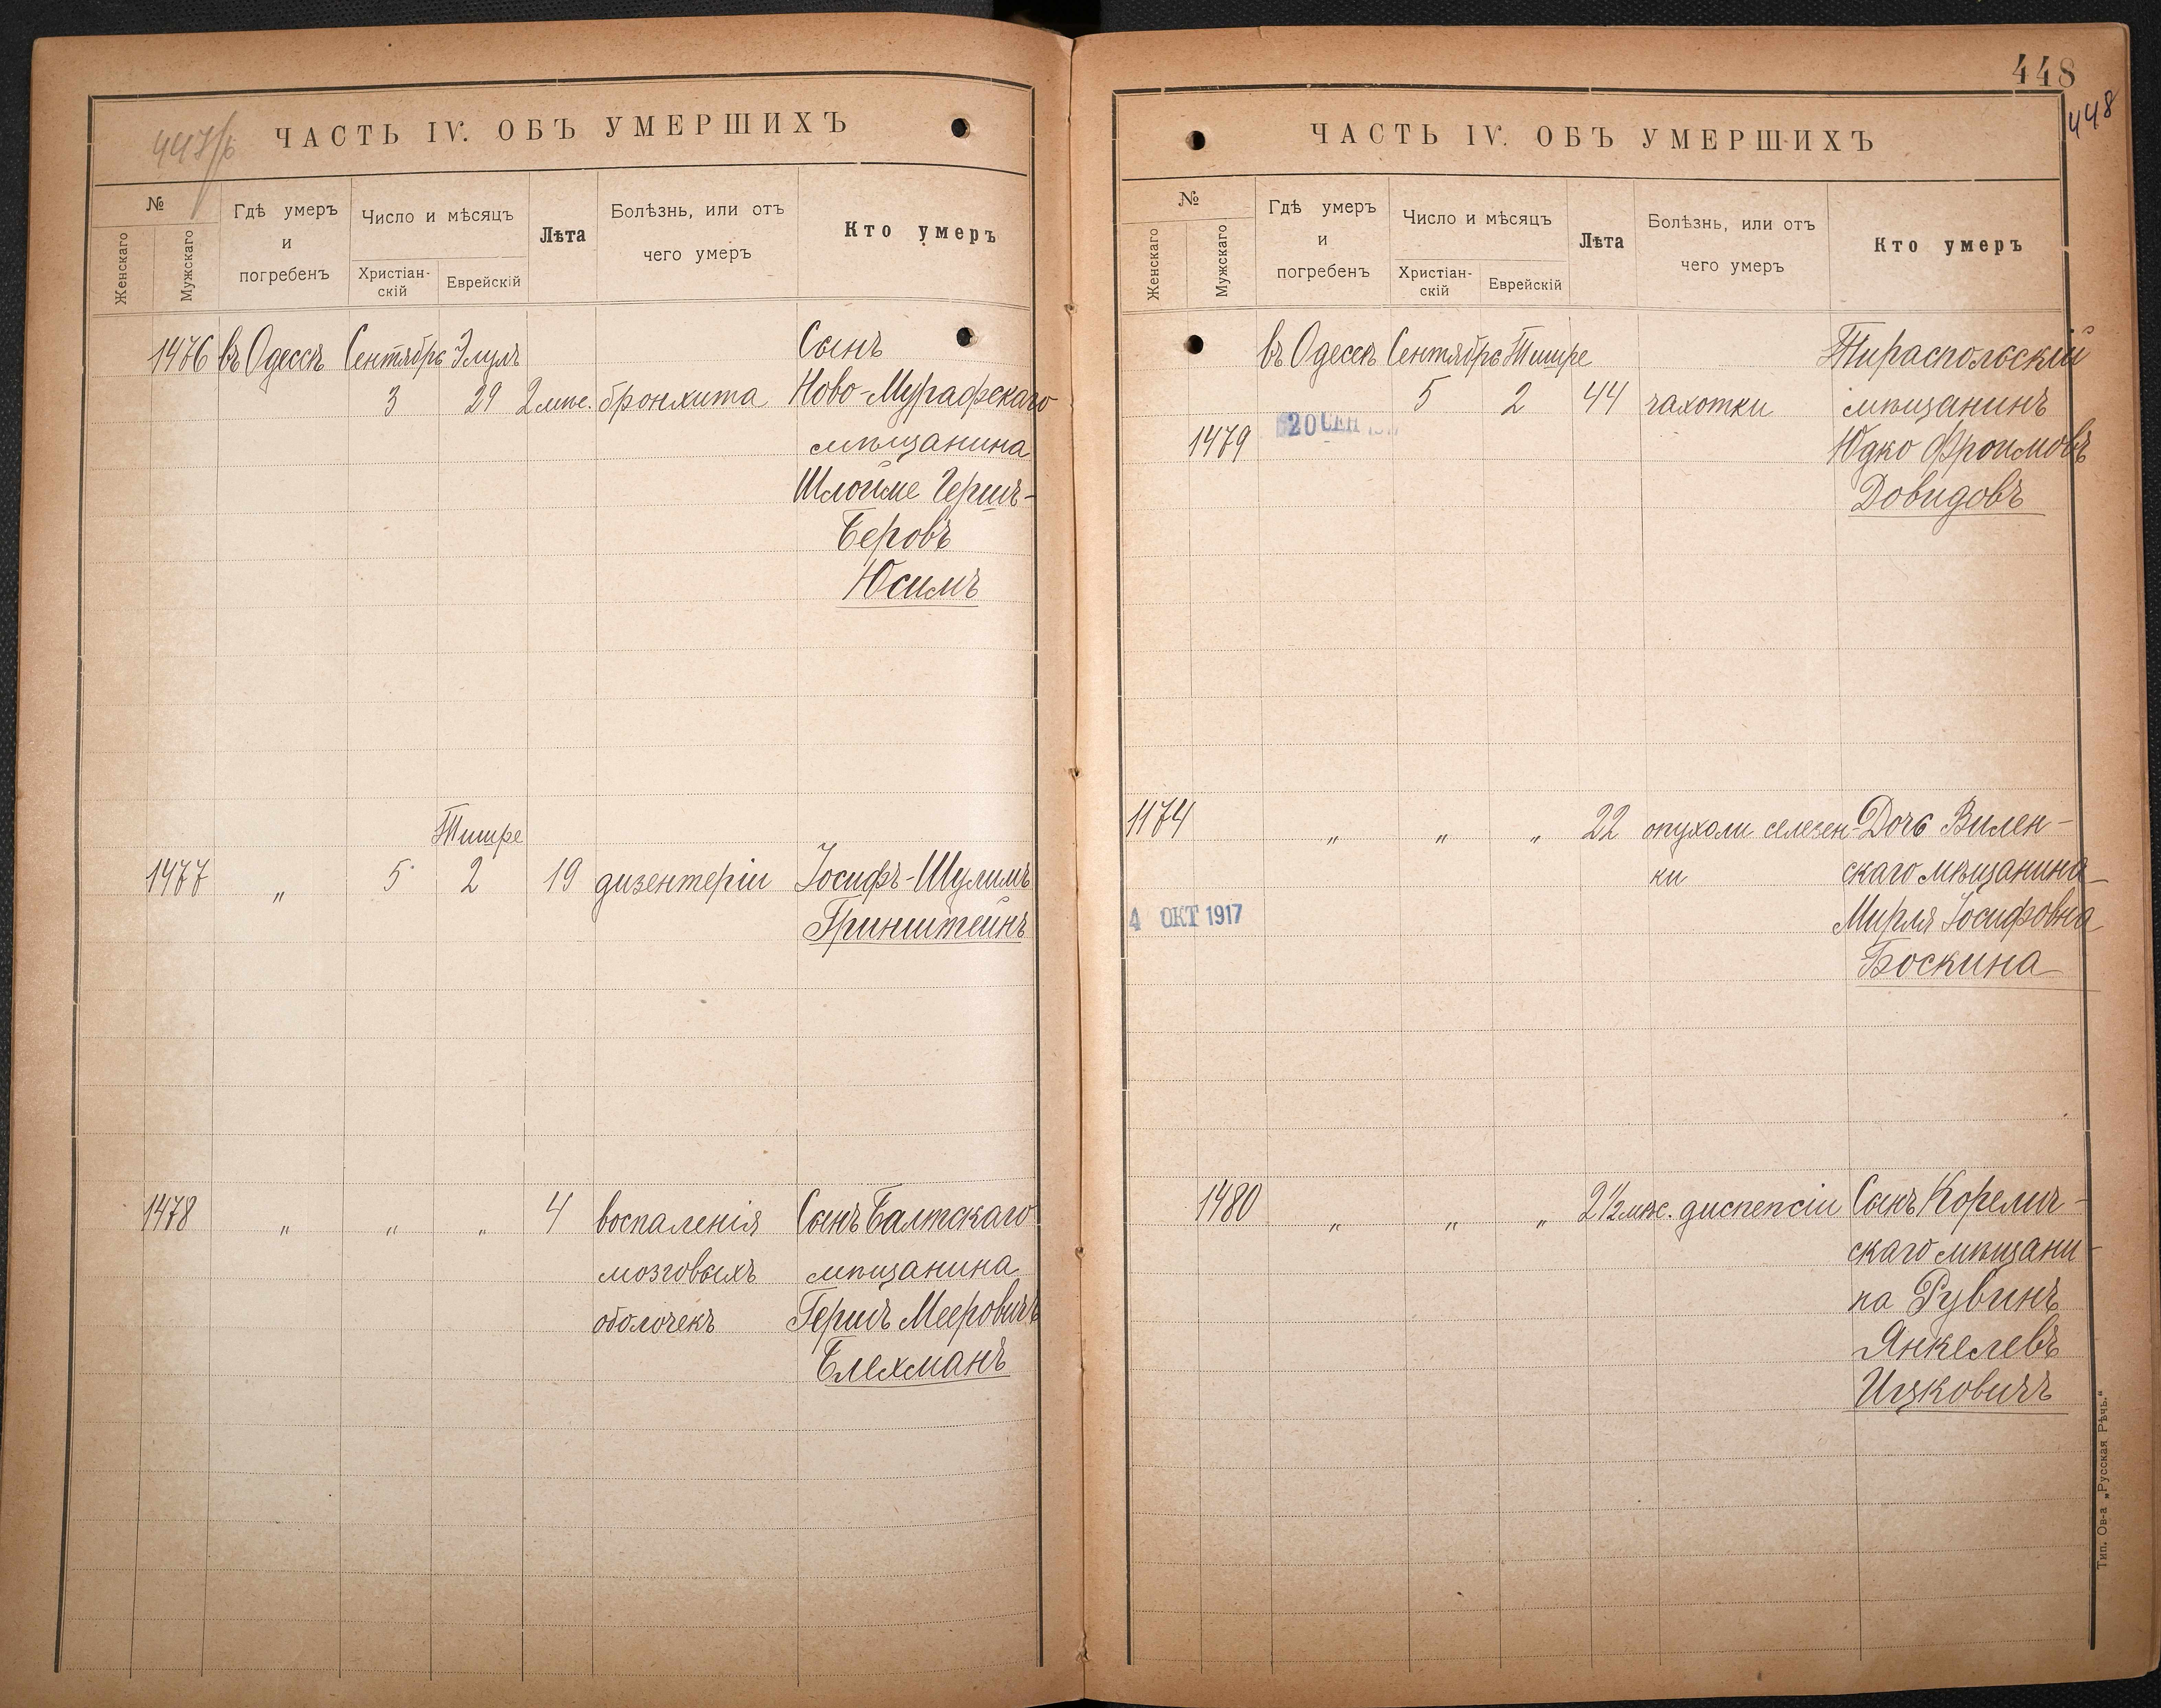 447/б
ЧАСТЬ IV. ОБЪ УМЕРШИХЪ
№
Женскаго
Мужскаго
Гдѣ умеръ
и
погребенъ
Число и мѣсяцъ
Христіан-
скій
Еврейскій
Лѣта
Болѣзнь, или отъ
чего умеръ
Кто умеръ
1476 въ Одессѣ Сентябрь Элулъ Сынъ
3 29 2 мѣс. бронхита Ново-Мурафскаго
мѣщанина
Шлойме Гершъ-
Беровъ
Юсимъ
Тишре
1477 " 5 2 19 дизентеріи Іосифъ-Шулимъ
Гринштейнъ
1478 " " " 4 воспаленія Сынъ Балтскаго
мозговыхъ мѣщанина
оболочекъ Гершъ Мееровичъ
Блехманъ
448
448
ЧАСТЬ IV. ОБЪ УМЕРШИХЪ
№
Женскаго
Мужскаго
Гдѣ умеръ
и
погребенъ
Число и мѣсяцъ
Христіан-
скій
Еврейскій
Лѣта
Болѣзнь, или отъ
чего умеръ
Кто умеръ
въ Одессѣ Сентябрь Тишре Тираспольскій
5 2 44 чахотки мѣщанинъ
20 СЕН
1479 Юдко Фроимовъ
Довидовъ
1174 " " " 22 опухоли селезен- Дочь Вилен-
ки скаго мѣщанина
4 ОКТ 1917 Мирля Іосифовна
Боскина
1480 " " " 2 1/2 мѣс. диспепсіи Сынъ Корелич-
скаго мѣщани-
на Рувинъ
Янкелевъ
Ицковичъ
Тип. Ов-а „Русская Рѣчь."